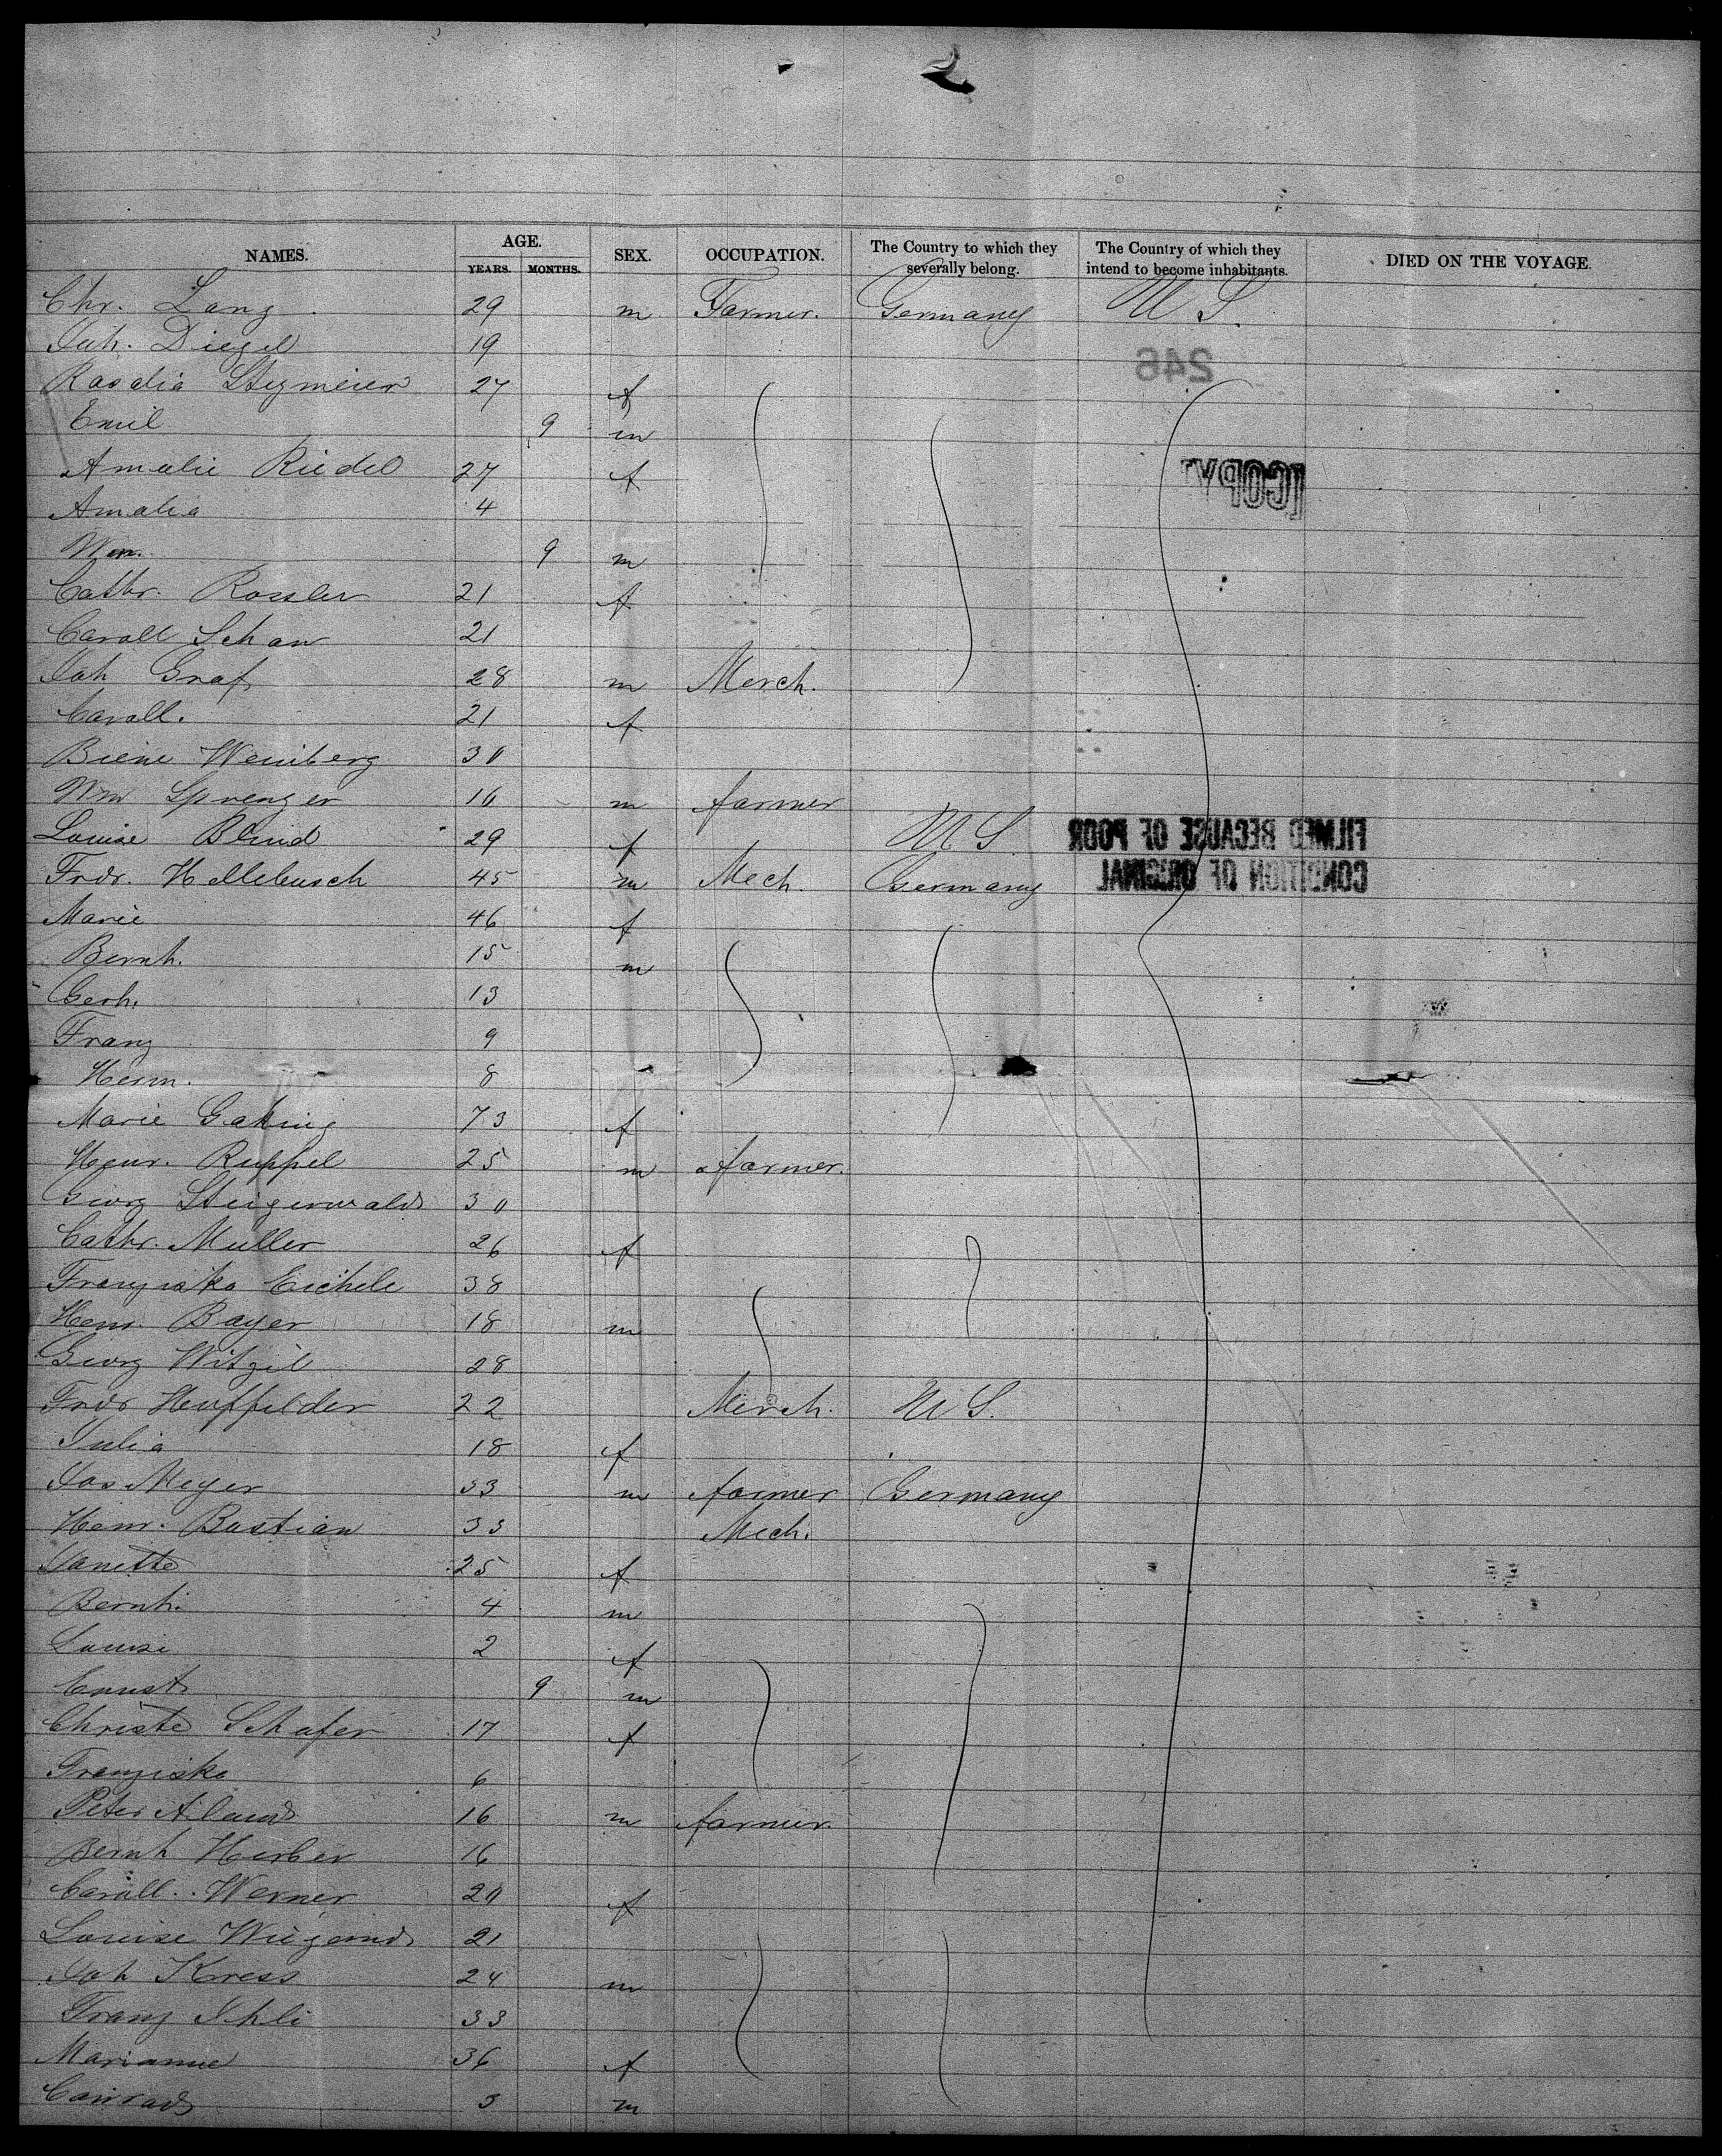 NAMES. AGE. SEX. OCCUPATION. The Country to which they severally belong. The Country of which they intend to become inhabitants. DIED ON THE VOYAGE.
YEARS. MONTHS.
Chr. Lang 29 m Farmer. Germany U S.
Joh. Diegel 19
246
Rosalia Stegmeier 27 f
Emil 9 m
Amalie Riedel 27 f
[COPY]
Amalia 4
Wm. 9 m
Cathr. Rossler 21 f
Caroll Schau 21
Joh Graf 28 m Merch.
Caroll. 21 f
Biene Weinberg 30
Wm Sprenger 16 m farmer
Louise Blind 29 f U S.
FILMED BECAUSE OF POOR
CONDITION OF ORIGINAL
Fredr. Hellebusch 45 m Mech. Germany
Marie 46 f
Bernh. 15 m
Gerh. 13
Franz 9
Herm. 8
Marie Gaking 73 f
Henr. Ruppel 25 m farmer.
Georg Steigerwald 30
Cathr. Muller 26 f
Franziska Eichele 38
Henr. Bayer 18 m
Georg Witzel 28
Fredr Hupfelder 22 Merch. U S.
Julia 18 f
Jos Meyer 33 m farmer Germany
Henr. Bastian 33 Mech.
Janette 25 f
Bernh. 4 m
Louise 2 f
Ernst 9 m
Christe Schafer 17 f
Franziska 6
Peter 16 m farmer.
Bernh Herber 16
Caroll. Werner 20 f
Louise Wiegand 21
Joh Kress 24 m
Franz Ihli 33
Marianne 36 f
Conrad 3 m